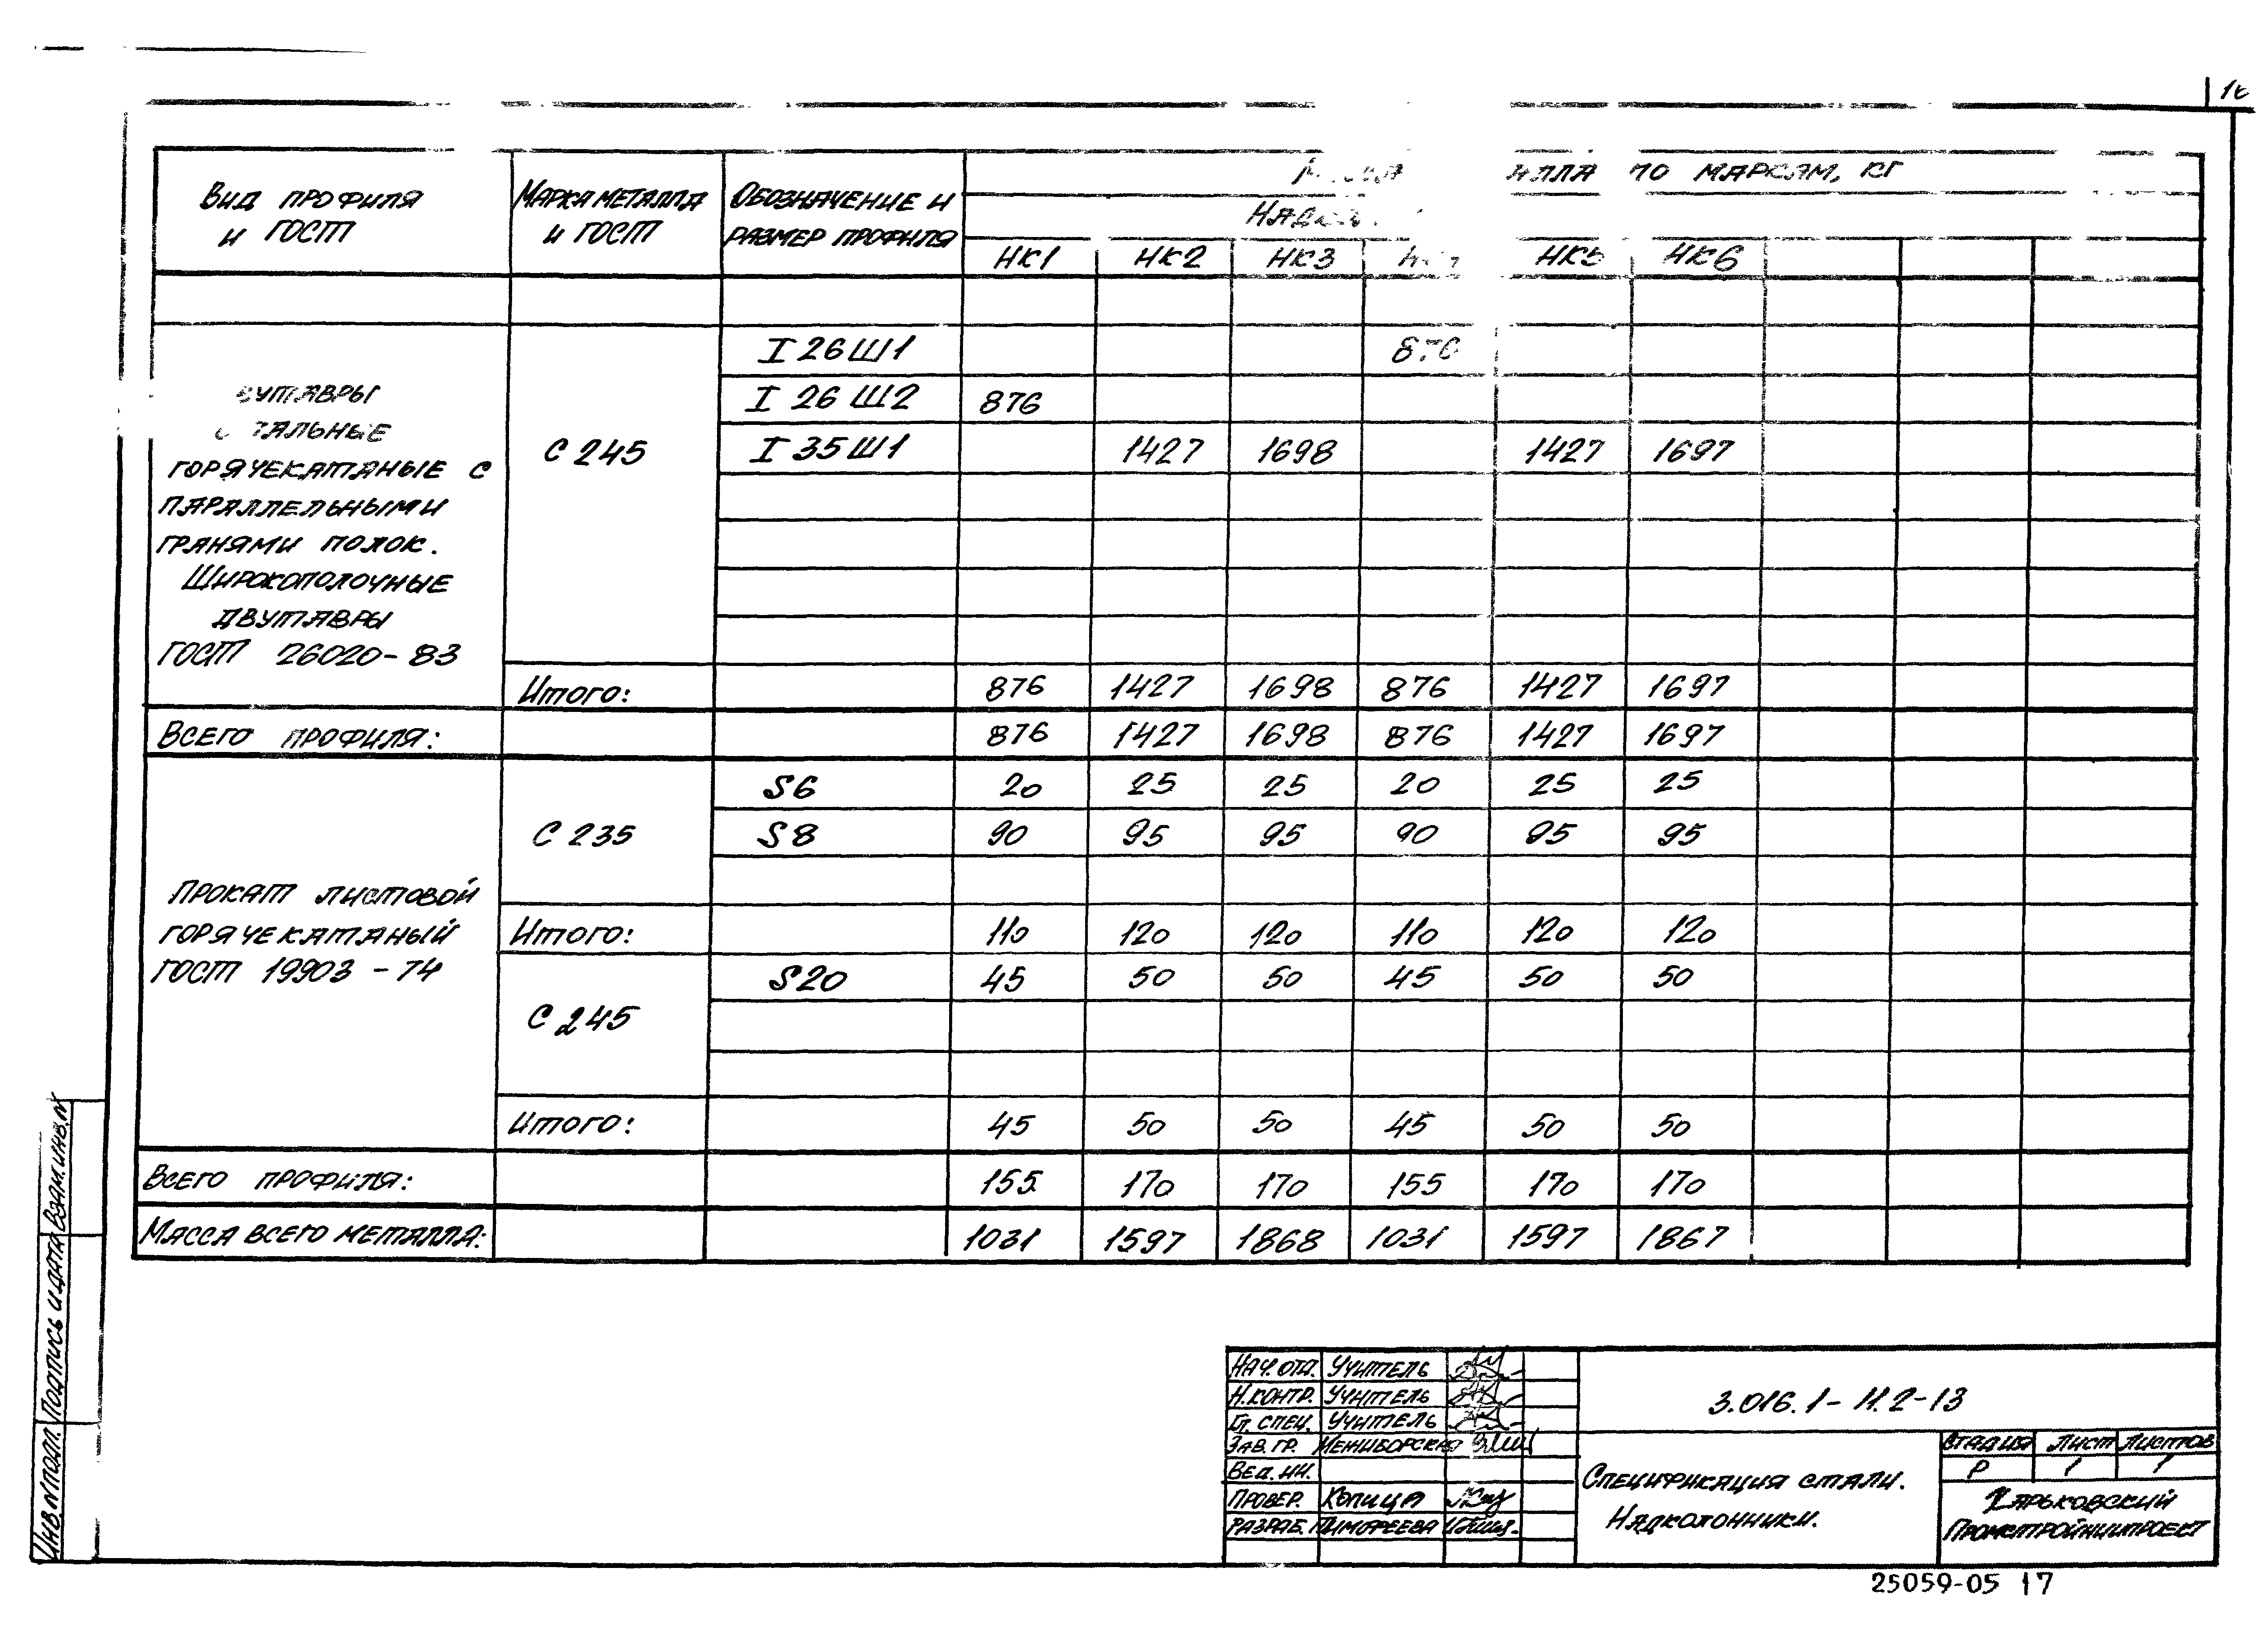 Вид профиля и ГОСТ
Марка металла и ГОСТ
Обозначение и размер профиля
по маркам, кг
НК1 НК2 НК3 НК5 НК6
I 26Ш1 876
I 26Ш2 876
стальные
горячекатаные с
параллельными
гранями полок.
Широкополочные
двутавры
ГОСТ 26020-83
С 245
I 35Ш1 1427 1698 1427 1697
Итого: 876 1427 1698 876 1427 1697
Всего профиля: 876 1427 1698 876 1427 1697
Прокат листовой
горячекатаный
ГОСТ 19903-74
С 235
S6 20 25 25 20 25 25
S8 90 95 95 90 95 95
Итого: 110 120 120 110 120 120
С 245
S20 45 50 50 45 50 50
Итого: 45 50 50 45 50 50
Всего профиля: 155 170 170 155 170 170
Масса всего металла: 1031 1597 1868 1031 1597 1867
Инв. N подл. Подпись и дата Взам. инв. N
Нач. отд. Учитель
Н. контр. Учитель
Гл. спец. Учитель
Зав. гр. Межиборская
Вед. ин.
Провер. Копица
Разраб. Тимофеева
3.016.1-11.2-13
Спецификация стали.
Надколонники.
Стадия Лист Листов
Р 1 1
Харьковский
Промстройниипроект
25059-05 17